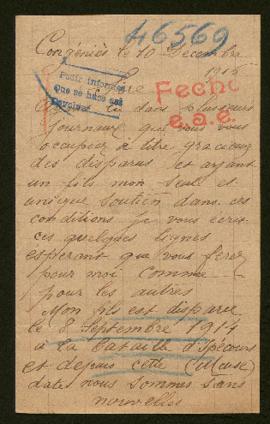 46569
Congénies le 10 Décembre
1915
Pedir informes
que se hace saé
Fecho
e.a.e.
lu dans plusieurs
journaux que vous vous
occupiez à titre gracieux
des disparus et ayant
un fils mon seul et
unique soutien dans ces
conditions je vous écris
ces quelques lignes
espérant que vous ferez
pour moi comme
pour les autres
Mon fils est disparu
le 8 Septembre 1914
à la bataille d'
et depuis cette (Meuse)
date nous sommes sans
nouvelles